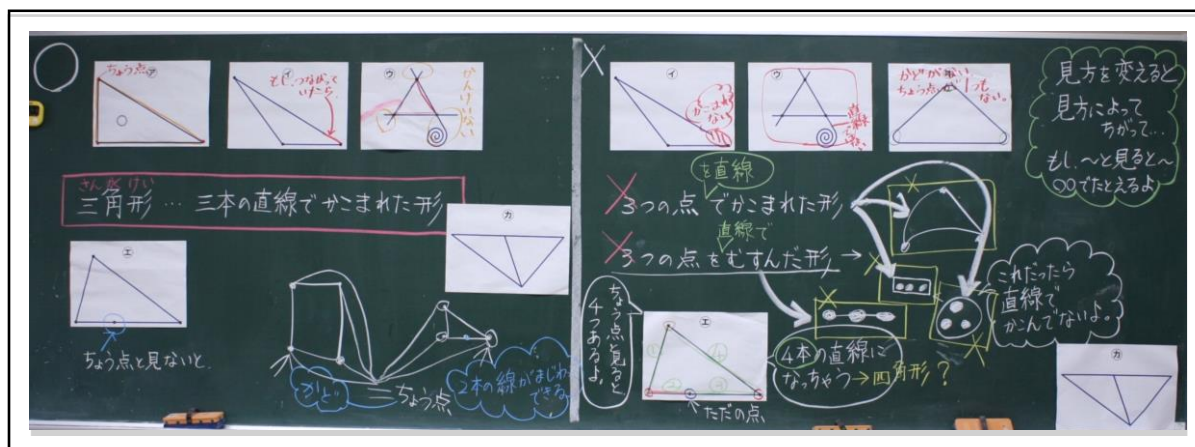 ㋐
ちょう点
㋑
もし、つながって
いたら
㋒
かんけいない
さんかくけい
三角形…三本の直線でかこまれた形
㋓
ちょう点と見ないと
㋕
かど
ちょう点
2本の線がまじわ
できる
㋑
かこまれ
ない
㋒
かどがない
ちょう点が1つも
ない。
見方を変えると
見方によって
ちがって…
もし、〜と見ると〜
○○でたとえるよ
を直線
3つの点でかこまれた形
直線で
3つの点をむすんだ形→
これだったら
直線で
かこんでないよ。
ちょう点と見ると
4つあるよ。
㋓
①
②
③
④
ただの点
4本の直線に
なっちゃう→四角形?
㋕